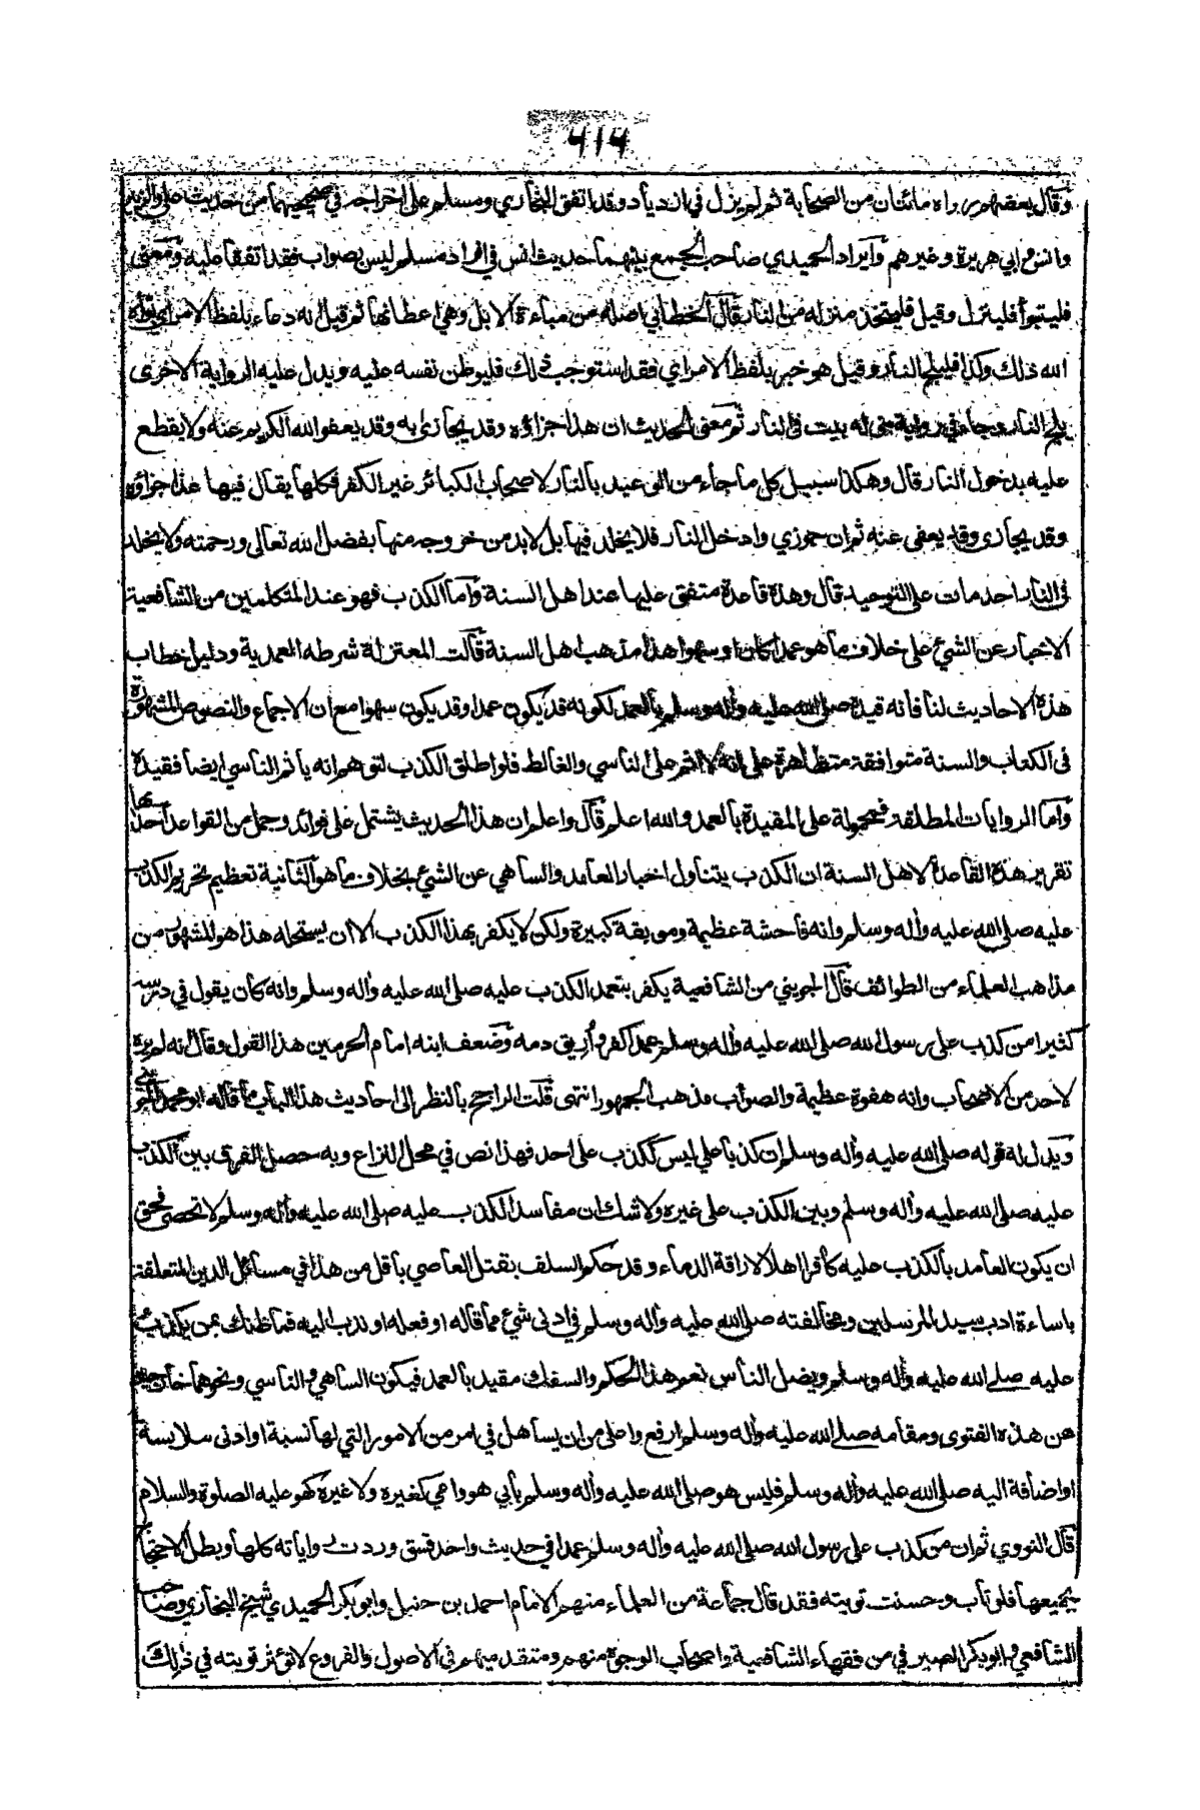 ٤١٤
وقال بعضهم رواه مائتان من الصحابة ثم لم يزل في ازدياد وقد اتفق البخاري ومسلم على اخراجه في صحيحيهما من حديث علي والزبير
وانس وابي هريرة وغيرهم وايراد الحميدي صاحب الجمع بينهما حديث انس في افراد مسلم ليس بصواب فقد اتفقا عليه ومعنى
فليتبوأ فلينزل وقيل فليتخذ منزله من النار قال الخطابي اصله من مباءة الابل وهي اعطانها ثم قيل انه دعاء بلفظ الامر اي بوأه
الله ذلك وكذا فليلج النار وقيل هو خبر بلفظ الامر اي فقد استوجب ذلك فليوطن نفسه عليه ويدل عليه الرواية الاخرى
يلج النار وجاء في رواية بني له بيت في النار ثم معنى الحديث ان هذا جزاؤه وقد يجازى به وقد يعفو الله الكريم عنه ولا يقطع
عليه بدخول النار قال وهكذا سبيل كل ما جاء من الوعيد بالنار لاصحاب الكبائر غير الكفر فكلها يقال فيها هذا جزاؤه
وقد يجازى وقد يعفى عنه ثم ان جوزي وادخل النار فلا يخلد فيها بل لابد من خروجه منها بفضل الله تعالى ورحمته ولا يخلد
في النار احد مات على التوحيد قال وهذه قاعدة متفق عليها عند اهل السنة واما الكذب فهو عند المتكلمين من الشافعية
الاخبار عن الشيء على خلاف ما هو عمدا كان او سهوا هذا مذهب اهل السنة قالت المعتزلة شرطه العمدية ودليل خطاب
هذه الاحاديث لنا فانه قيده صلى الله عليه وأله وسلم بالعمد لكونه قد يكون عمدا وقد يكون سهوا مع ان الاجماع والنصوص المشهورة
في الكتاب والسنة متوافقة متظاهرة على انه لا اثم على الناسي والغالط فلو اطلق الكذب لتوهم انه يأثم الناسي ايضا فقيده
واما الروايات المطلقة فمحمولة على المقيدة بالعمد والله اعلم قال واعلم ان هذا الحديث يشتمل على فوائد وجمل من القواعد احدها
تقرير هذه القاعدة لاهل السنة ان الكذب يتناول اخبار العامد والساهي عن الشيء بخلاف ما هو الثانية تعظيم تحريم الكذب
عليه صلى الله عليه وأله وسلم وانه فاحشة عظيمة وموبقة كبيرة ولكن لا يكفر بهذا الكذب الا ان يستحله هذا هو المشهور من
مذاهب العلماء من الطوائف قال الجويني من الشافعية يكفر بتعمد الكذب عليه صلى الله عليه وأله وسلم وانه كان يقول في درسه
كثيرا من كذب على رسول الله صلى الله عليه وأله وسلم عمدا كفر وأريق دمه وضعف ابنه امام الحرمين هذا القول وقال انه لم يره
لاحد من الاصحاب وانه هفوة عظيمة والصواب مذهب الجمهور انتهى قلت الراجح بالنظر الى احاديث هذا الباب ما قاله ابو محمد الجويني
ويدل له قوله صلى الله عليه وأله وسلم ان كذبا علي ليس ككذب على احد فهذا نص في محل النزاع وبه حصل الفرق بين الكذب
عليه صلى الله عليه وأله وسلم وبين الكذب على غيره ولا شك ان مفاسد الكذب عليه صلى الله عليه وأله وسلم لا تحصى فحق
ان يكون العامد بالكذب عليه كافرا اهلا لاراقة الدماء وقد حكم السلف بقتل العاصي باقل من هذا في مسائل الدين المتعلقة
باساءة ادب سيد المرسلين ومخالفته صلى الله عليه وأله وسلم في ادنى شيء مما قاله او فعله او ندب اليه فما ظنك بمن يكذب
عليه صلى الله عليه وأله وسلم ويضل الناس نعم هذا الحكم والسفك مقيد بالعمد فيكون الساهي والناسي ونحوهما خارجين
عن هذه الفتوى ومقامه صلى الله عليه وأله وسلم ارفع واعلى من ان يساهل في امر من الامور التي لها نسبة او ادنى ملابسة
او اضافة اليه صلى الله عليه وأله وسلم فليس هو صلى الله عليه وأله وسلم بأبي هو وامي كغيره ولا غيره كهو عليه الصلوة والسلام
قال النووي ثم ان من كذب على رسول الله صلى الله عليه وأله وسلم عمدا في حديث واحد فسق وردت رواياته كلها وبطل الاحتجاج
بجميعها فلو تاب وحسنت توبته فقد قال جماعة من العلماء منهم الامام احمد بن حنبل وابو بكر الحميدي شيخ البخاري وصاحب
الشافعي وابو بكر الصيرفي من فقهاء الشافعية واصحاب الوجوه منهم ومتقدميهم في الاصول والفروع لا تؤثر توبته في ذلك